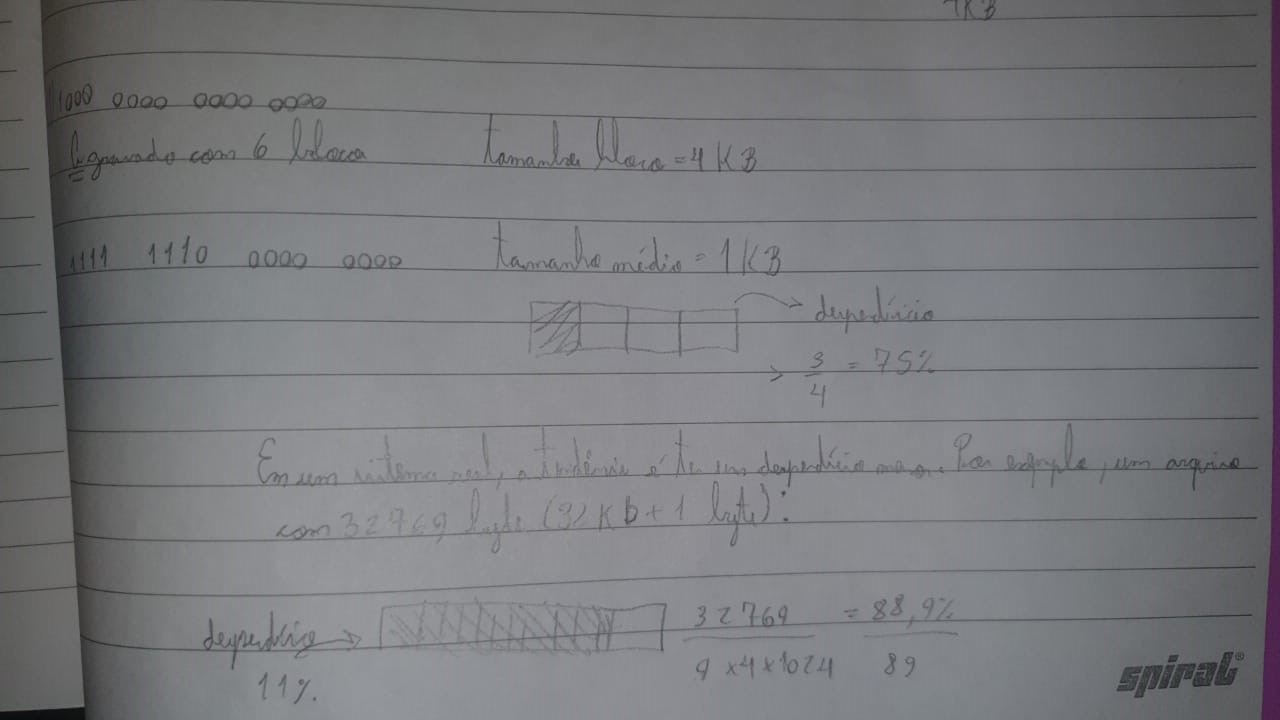 1KB
1000 0000 0000 0000
A gravado com 6 blocos tamanho bloco = 4 KB
1111 1110 0000 0000 tamanho médio = 1KB
desperdício
3/4 = 75%
Em um sistema real, a tendência é ter um desperdício menor. Por exemplo, um arquivo
com 32769 byte (32Kb + 1 byte):
desperdício 32769 = 88,9%
11%. 9 x 4 x 1024 89
spiral®